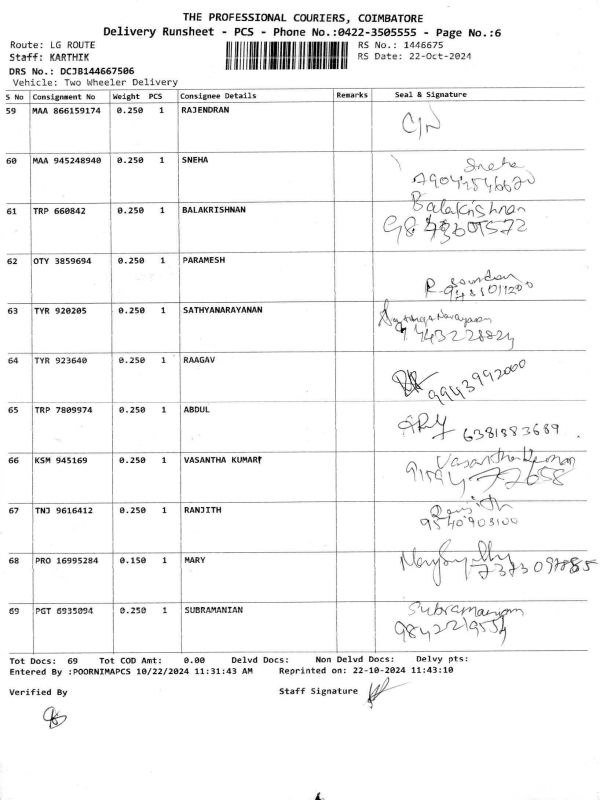 THE PROFESSIONAL COURIERS, COIMBATORE
Delivery Runsheet - PCS - Phone No.:0422-3505555 - Page No.:6
Route: LG ROUTE RS No.: 1446675
Staff: KARTHIK RS Date: 22-Oct-2024
DRS No.: DCJB144667506
Vehicle: Two Wheeler Delivery
S No Consignment No Weight PCS Consignee Details Remarks Seal & Signature
59 MAA 866159174 0.250 1 RAJENDRAN
60 MAA 945248940 0.250 1 SNEHA Sneha
61 TRP 660842 0.250 1 BALAKRISHNAN Balakrishnan
62 OTY 3859694 0.250 1 PARAMESH
63 TYR 920205 0.250 1 SATHYANARAYANAN
64 TYR 923640 0.250 1 RAAGAV 9943992000
65 TRP 7809974 0.250 1 ABDUL 6381883689
66 KSM 945169 0.250 1 VASANTHA KUMARI
67 TNJ 9616412 0.250 1 RANJITH
68 PRO 16995284 0.150 1 MARY
69 PGT 6935094 0.250 1 SUBRAMANIAN Subramaniyam
Tot Docs: 69 Tot COD Amt: 0.00 Delvd Docs: Non Delvd Docs: Delvy pts:
Entered By :POORNIMAPCS 10/22/2024 11:31:43 AM Reprinted on: 22-10-2024 11:43:10
Verified By Staff Signature